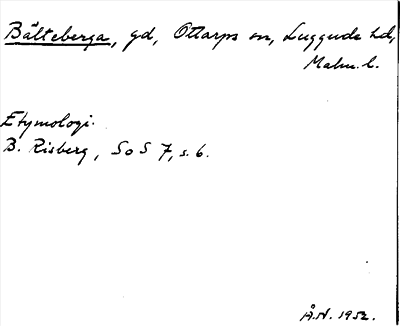 Bälteberga, gd, Ottarps sn, Luggude hd,
Malm. l.
Etymologi.
B. Risberg, SoS 7, s. 6.
Å.H. 1952.